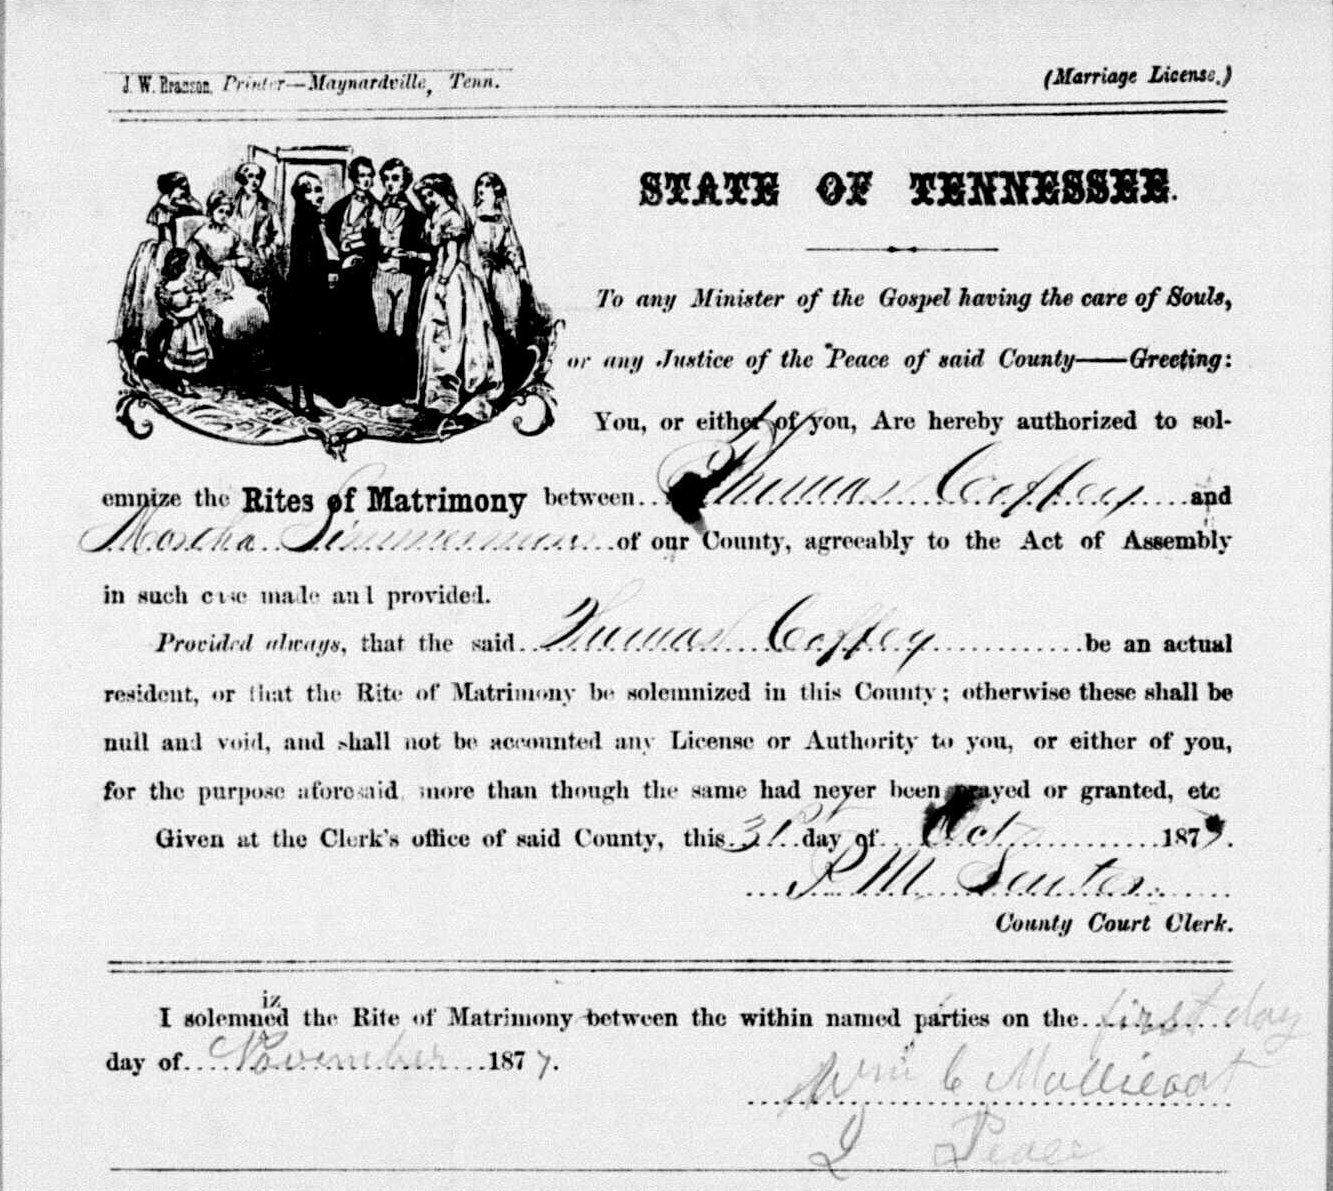 J. W. Branson, Printer—Maynardville, Tenn.
(Marriage License.)
STATE OF TENNESSEE.
To any Minister of the Gospel having the care of Souls,
or any Justice of the Peace of said County——Greeting:
You, or either of you, Are hereby authorized to sol-
emnize the Rites of Matrimony between Thumas Coffey and
Martha Simmermun of our County, agreeably to the Act of Assembly
in such case made and provided.
Provided always, that the said Thumas Coffey be an actual
resident, or that the Rite of Matrimony be solemnized in this County; otherwise these shall be
null and void, and shall not be accounted any License or Authority to you, or either of you,
for the purpose aforesaid, more than though the same had never been prayed or granted, etc
Given at the Clerk's office of said County, this 31st day of Oct 1877.
P M Senter
County Court Clerk.
iz
I solemned the Rite of Matrimony between the within named parties on the first day
day of November 1877.
Wm C Mallicoat
J Peace